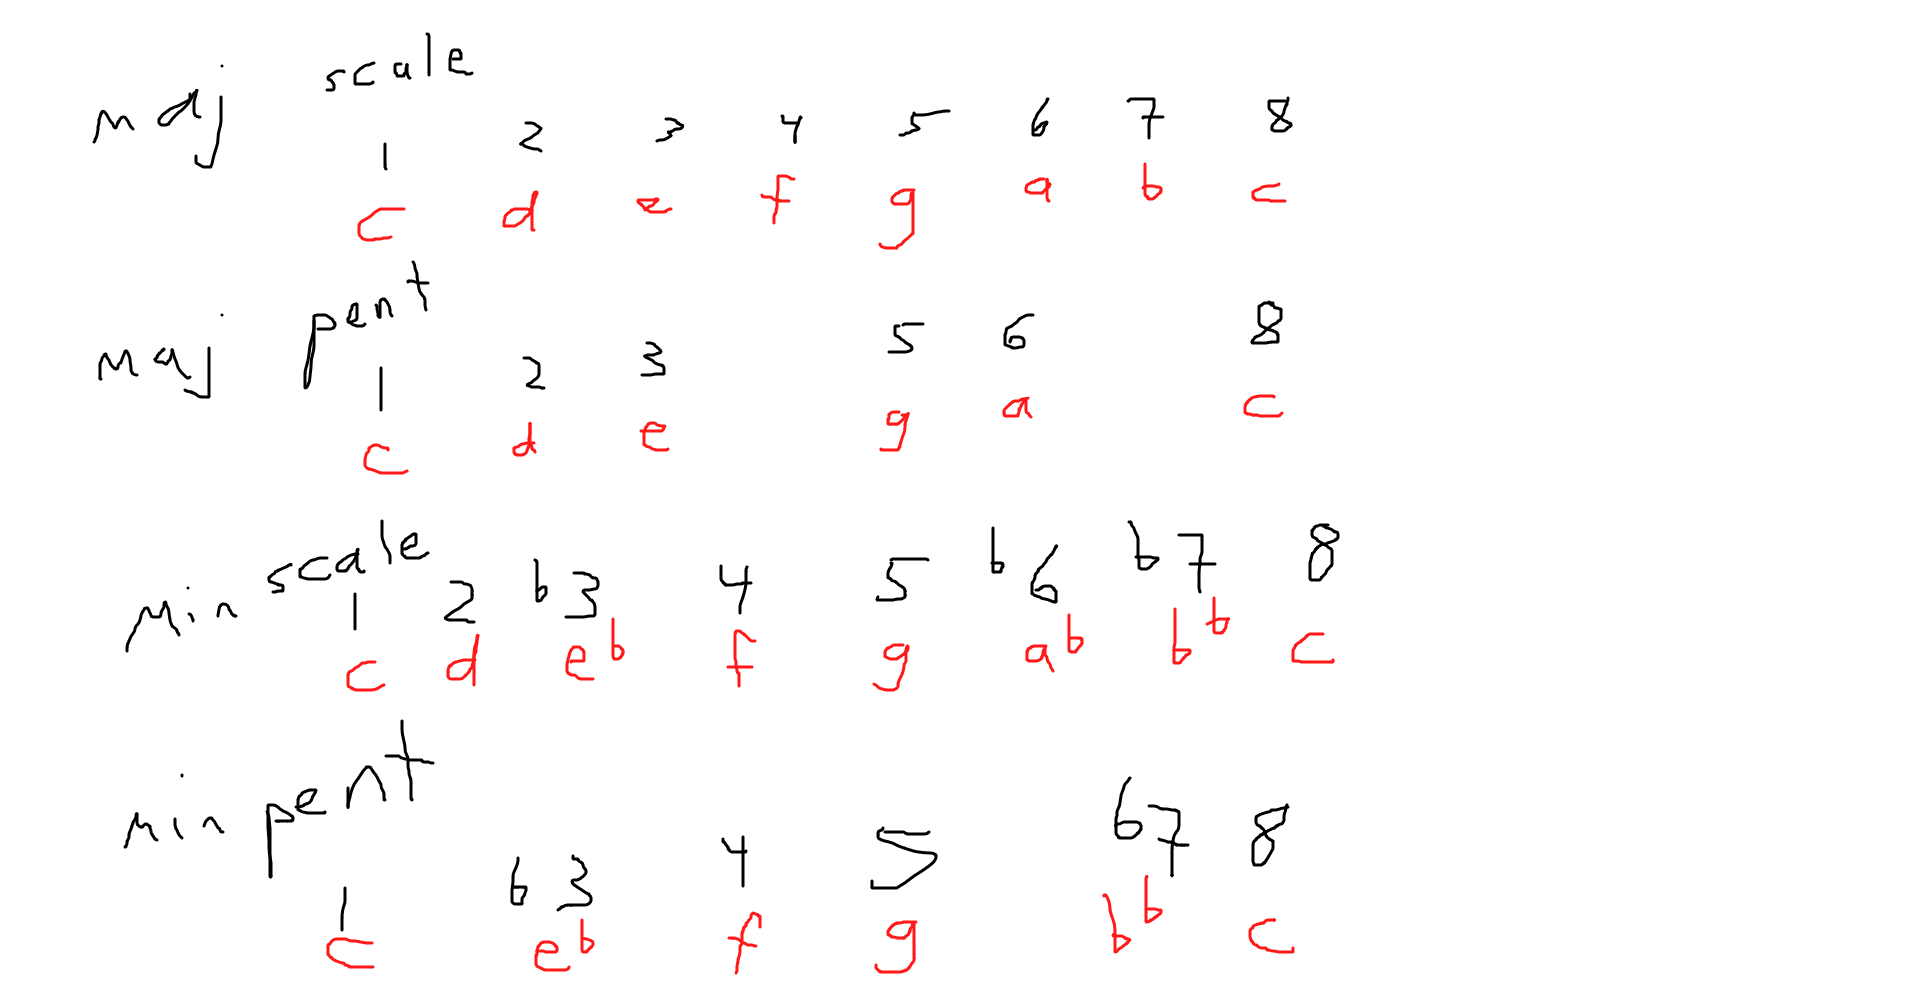 maj scale
1 2 3 4 5 6 7 8
c d e f g a b c
maj pent
1 2 3 5 6 8
c d e g a c
min scale
1 2 b3 4 5 b6 b7 8
c d eb f g ab bb c
min pent
1 b3 4 5 b7 8
c eb f g bb c